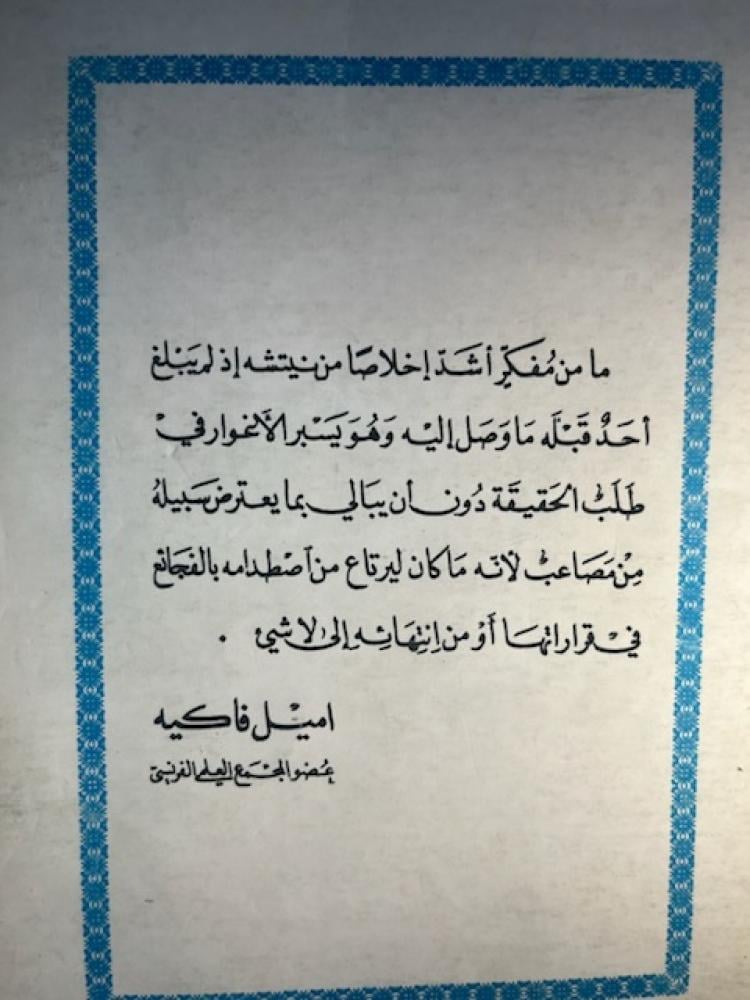 ما من مُفكرٍ أشدّ إخلاصًا من نيتشه إذ لم يَبْلغ
أحدٌ قَبْلَه مَا وَصَل إليه وَهُوَ يَسْبر الأغوار في
طَلَب الحَقيقَة دُون أن يبَالي بما يعترض سَبيلهُ
مِنْ مَصَاعب لأنه مَا كان ليرتاع من اصْطدامه بالفَجائع
في قراراتها أَوْ من اِنتِهَائه إلى لا شيئ .
اميْل فاكيه
عُضو المجْمَع العِلمي الفرنسي